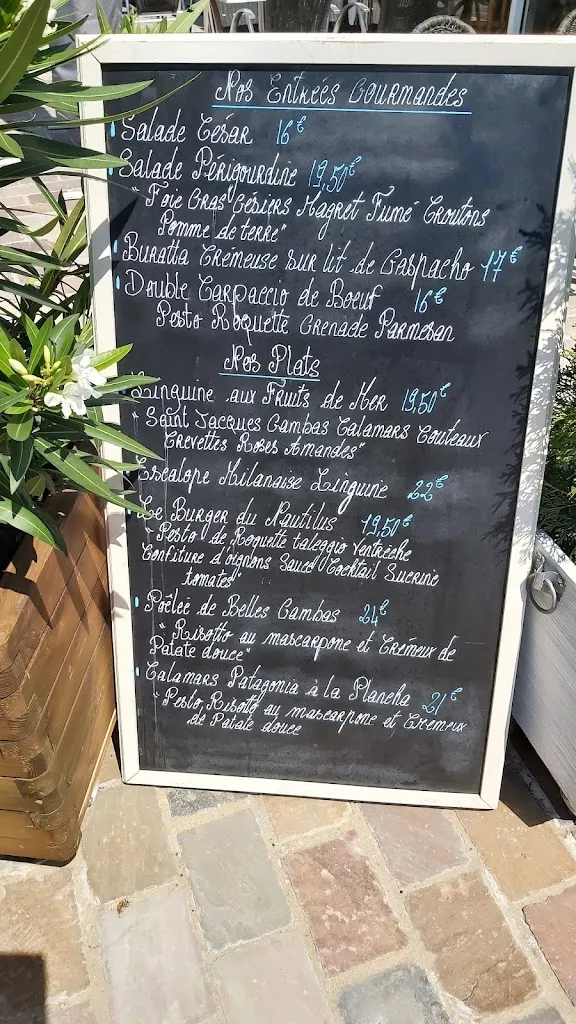 Nos Entrées Gourmandes
Salade César 16€
Salade Périgourdine 19,50€
"Foie Gras Gésiers Magret Fumé Croutons
Pomme de terre"
Buratta Crémeuse sur lit de Gaspacho 17€
Double Carpaccio de Boeuf 16€
Pesto Roquette Grenade Parmesan
Nos Plats
Linguine aux Fruits de Mer 19,50€
"Saint Jacques Gambas Calamars Couteaux
Crevettes Roses Amandes"
Escalope Milanaise Linguine 22€
Le Burger du Nautilus 19,50€
"Pesto de Roquette taleggio Ventrèche
Confiture d'oignons Sauce Cocktail Sucrine
tomates"
Poêlée de Belles Gambas 24€
"Risotto au mascarpone et Crémeux de
Patate douce"
Calamars Patagonia à la Plancha 21€
"Pesto, Risotto au mascarpone et Crémeux
de Patate douce